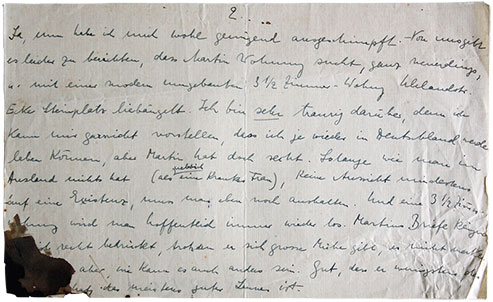 2.
Ja, nun habe ich mich wohl genügend ausgeschimpft. Von uns gibt
es leider zu berichten, dass Martin Wohnung sucht, ganz neuerdings,
u. mit einer modern umgebauten 3 1/2 Zimmer-Wohng Uhlandstr.
Ecke Steinplatz liebäugelt. Ich bin sehr traurig darüber, denn ich
kann mir garnicht vorstellen, dass ich je wieder in Deutschland werde
leben können, aber Martin hat doch recht. Solange wie man im
Ausland nichts hat (als eine kranke Frau), keine Aussicht mindestens
auf eine Existenz, muss man eben noch aushalten. Und eine 3 1/2 Zim
wird man hoffentlich immer wieder los. Martins Briefe klingen
recht bedrückt, trotzdem er sich grosse Mühe gibt, es nicht
aber, wie kann es auch anders sein. Gut, dass er wenigstens
des meistens guter Dinner ist.